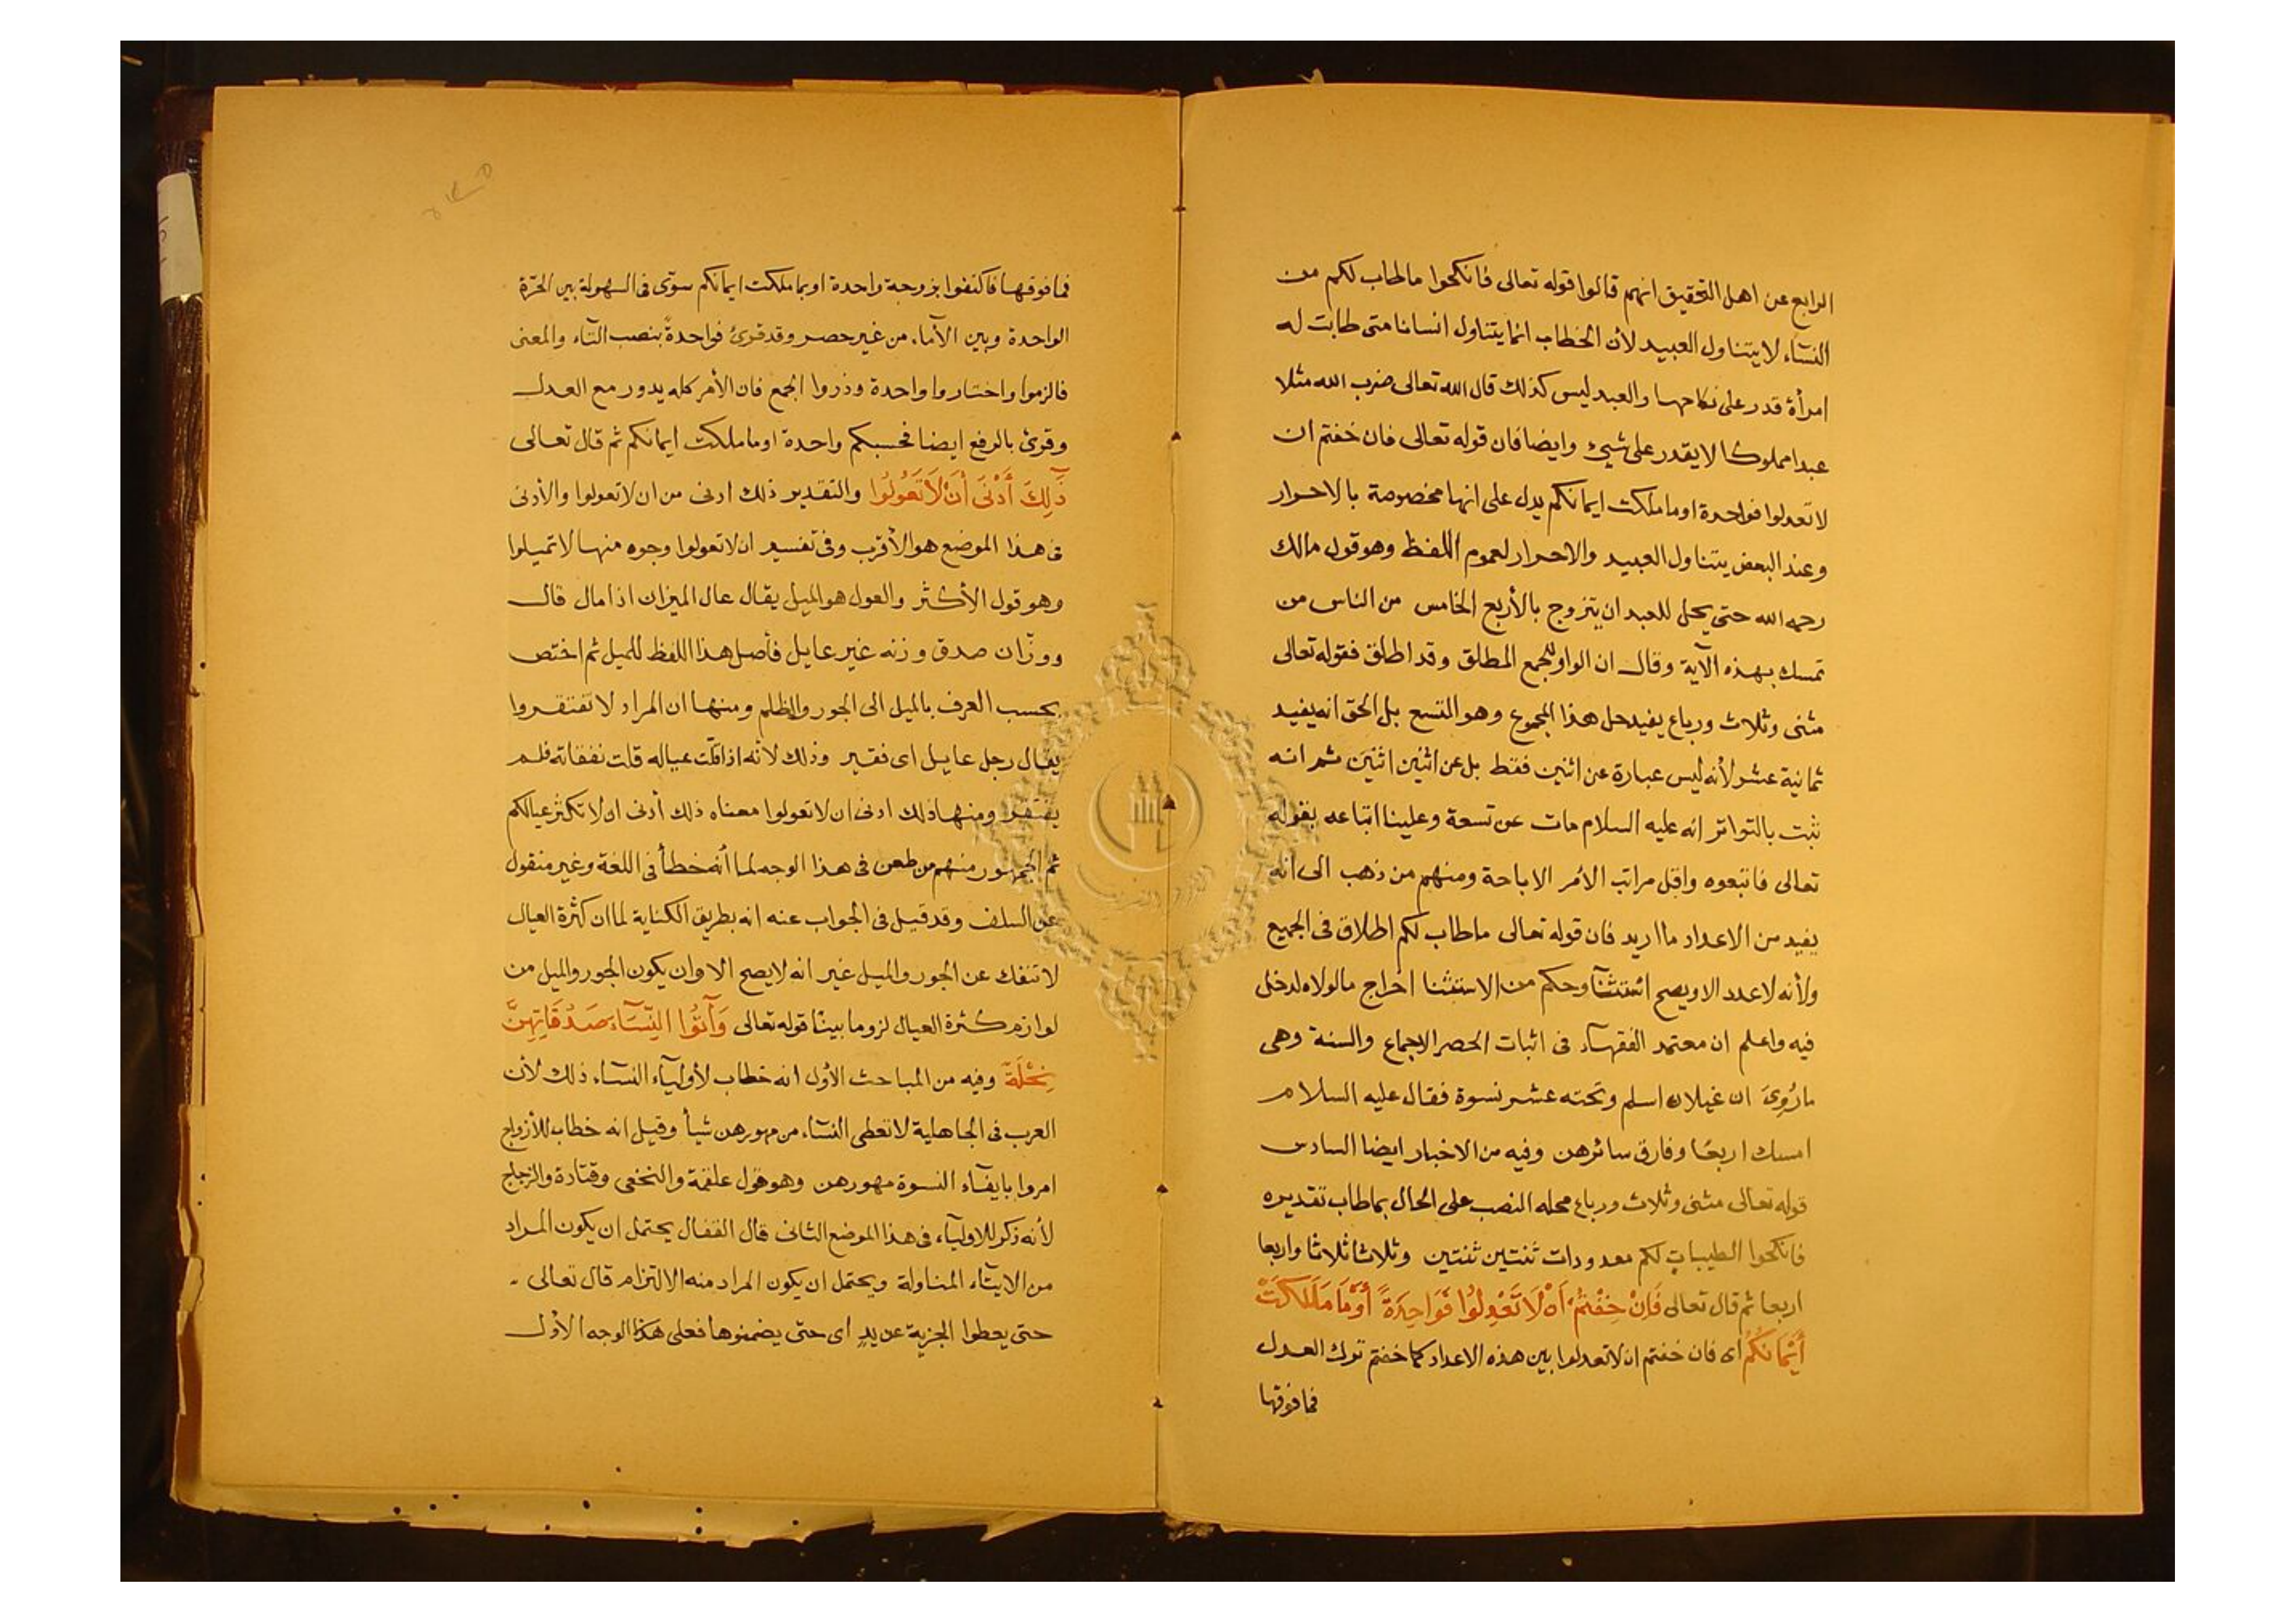 الرابع عن اهل التحقيق انهم قالوا قوله تعالى فانكحوا ماطاب لكم من
النسآء لا يتناول العبيد لأن الخطاب انما يتناول انسانا متى طابت له
امرأة قدر على نكاحها والعبد ليس كذلك قال الله تعالى ضرب الله مثلا
عبدا مملوكا لا يقدر على شيئ وايضا فان قوله تعالى فان خفتم ان
لا تعدلوا فواحدة او ما ملكت ايمانكم يدل على انها مخصوصة بالاحرار
وعند البعض يتناول العبيد والاحرار لعموم اللفظ وهو قول مالك
رحمه الله حتى يحل للعبد ان يتزوج بالأربع الخامس من الناس من
تمسك بهذه الآية وقال ان الواو للجمع المطلق وقد اطلق فقوله تعالى
مثنى وثلاث ورباع يفيد حل هذا المجموع وهو التسع بل الحق انه يفيد
ثمانية عشر لأنه ليس عبارة عن اثنين فقط بل عن اثنين اثنين ثم انه
ثبت بالتواتر انه عليه السلام مات عن تسعة وعلينا اتباعه بقوله
تعالى فاتبعوه واقل مراتب الأمر الاباحة ومنهم من ذهب الى انه
يفيد من الاعداد ما اريد فان قوله تعالى ماطاب لكم اطلاق فى الجميع
ولأنه لا عدد الا ويصح استثنآؤ وحكم من الاستثنا اخراج مالولاه لدخل
فيه واعلم ان معتمد الفقهآء فى اثبات الحصر الاجماع والسنة وهى
ما رُوِىَ ان غيلان اسلم وتحته عشر نسوة فقال عليه السلام
امسك اربعًا وفارق سائرهن وفيه من الاخبار ايضا السادس
قوله تعالى مثنى وثلاث ورباع محله النصب على الحال بماطاب تقديره
فانكحوا الطيبات لكم معدودات ثنتين ثنتين وثلاثا ثلاثا واربعا
اربعا ثم قال تعالى فَاِنْ خِفْتُمْ اَنْ لَا تَعْدِلُوا فَوَاحِدَةً أَوْ مَا مَلَكَتْ
أَيْمَانُكُمْ اى فان خفتم ان لا تعدلوا بين هذه الاعداد كما خفتم ترك العدل
فما فوقها
فما فوقها فاكتفوا بزوجة واحدة او بما ملكت ايمانكم سوّى فى السهولة بين الحرّة
الواحدة وبين الأمآء من غير حصر وقد قرئ فواحدةً بنصب التآء والمعنى
فالزموا واختاروا واحدة وذروا الجمع فان الأمر كله يدور مع العدل
وقرئ بالرفع ايضا فحسبكم واحدة او ما ملكت ايمانكم ثم قال تعالى
ذَٰلِكَ أَدْنَى أَنْ لَا تَعُولُوا والتقدير ذلك ادنى من ان لا تعولوا والأدنى
فى هذا الموضع هو الأقرب وفى تفسير ان لا تعولوا وجوه منها لا تميلوا
وهو قول الأكثر والعول هو الميل يقال عال الميزان اذا مال قال
ووزّان صدق وزنه غير عايل فأصل هذا اللفظ للميل ثم اختص
بحسب العرف بالميل الى الجور والظلم ومنها ان المراد لا تفتقروا
يقال رجل عايل اى فقير وذلك لأنه اذا قلّت عياله قلت نفقاته فلم
يفتقر ومنها ذلك ادنى ان لا تعولوا معناه ذلك أدنى ان لا تكثر عيالكم
ثم الجمهور منهم من طعن فى هذا الوجه لما أنه خطأ فى اللغة وغير منقول
عن السلف وقد قيل فى الجواب عنه انه بطريق الكناية لما ان كثرة العيال
لا تنفك عن الجور والميل غير انه لا يصح الا وان يكون الجور والميل من
لوازم كثرة العيال لزوما بينًا قوله تعالى وَآتُوا النِّسَآءَ صَدُقَاتِهِنَّ
نِحْلَةً وفيه من المباحث الأول انه خطاب لأوليآء النسآء ذلك لأن
العرب فى الجاهلية لا تعطى النسآء من مهورهن شيأ وقيل انه خطاب للأزواج
امروا بايفآء النسوة مهورهن وهو قول علقمة والنخعى وقتادة والزجاج
لأنه ذكر للاوليآء فى هذا الموضع الثانى قال القفال يحتمل ان يكون المراد
من الايتآء المناولة ويحتمل ان يكون المراد منه الالتزام قال تعالى
حتى يعطوا الجزية عن يدٍ اى حتى يضمنوها فعلى هذا الوجه الأول